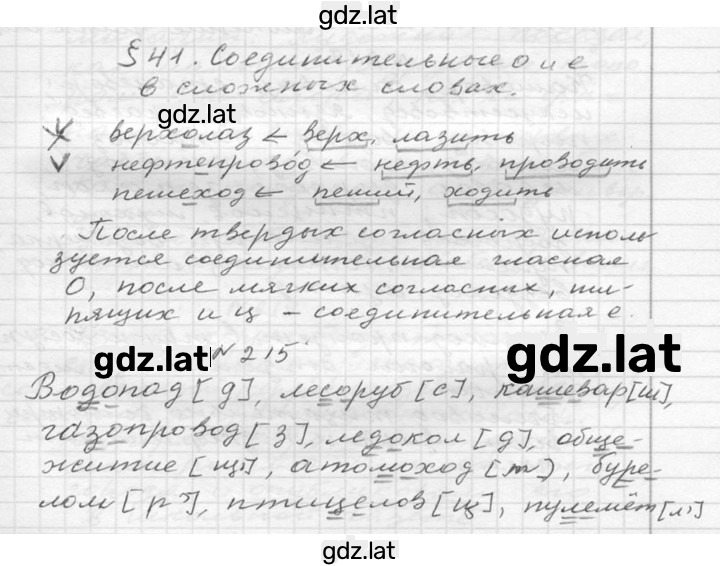 gdz.lat
§ 41. Соединительные о и е
в сложных словах.
gdz.lat
верхолаз ← верх, лазить
нефтепровóд ← нефть, проводить
пешеход ← пеший, ходить
После твердых согласных исполь
зуется соединительная гласная
О, после мягких согласных, ши-
пящих и ц – соединительная е.
gdz.lat
№ 215
gdz.lat
Водопад [д], лесоруб [с], кашевар [ш],
газопровод [з], ледокол [д], обще-
житие [щ'], атомоход [м], буре-
лом [р'], птицелов [ц], пулемёт [л']
gdz.lat